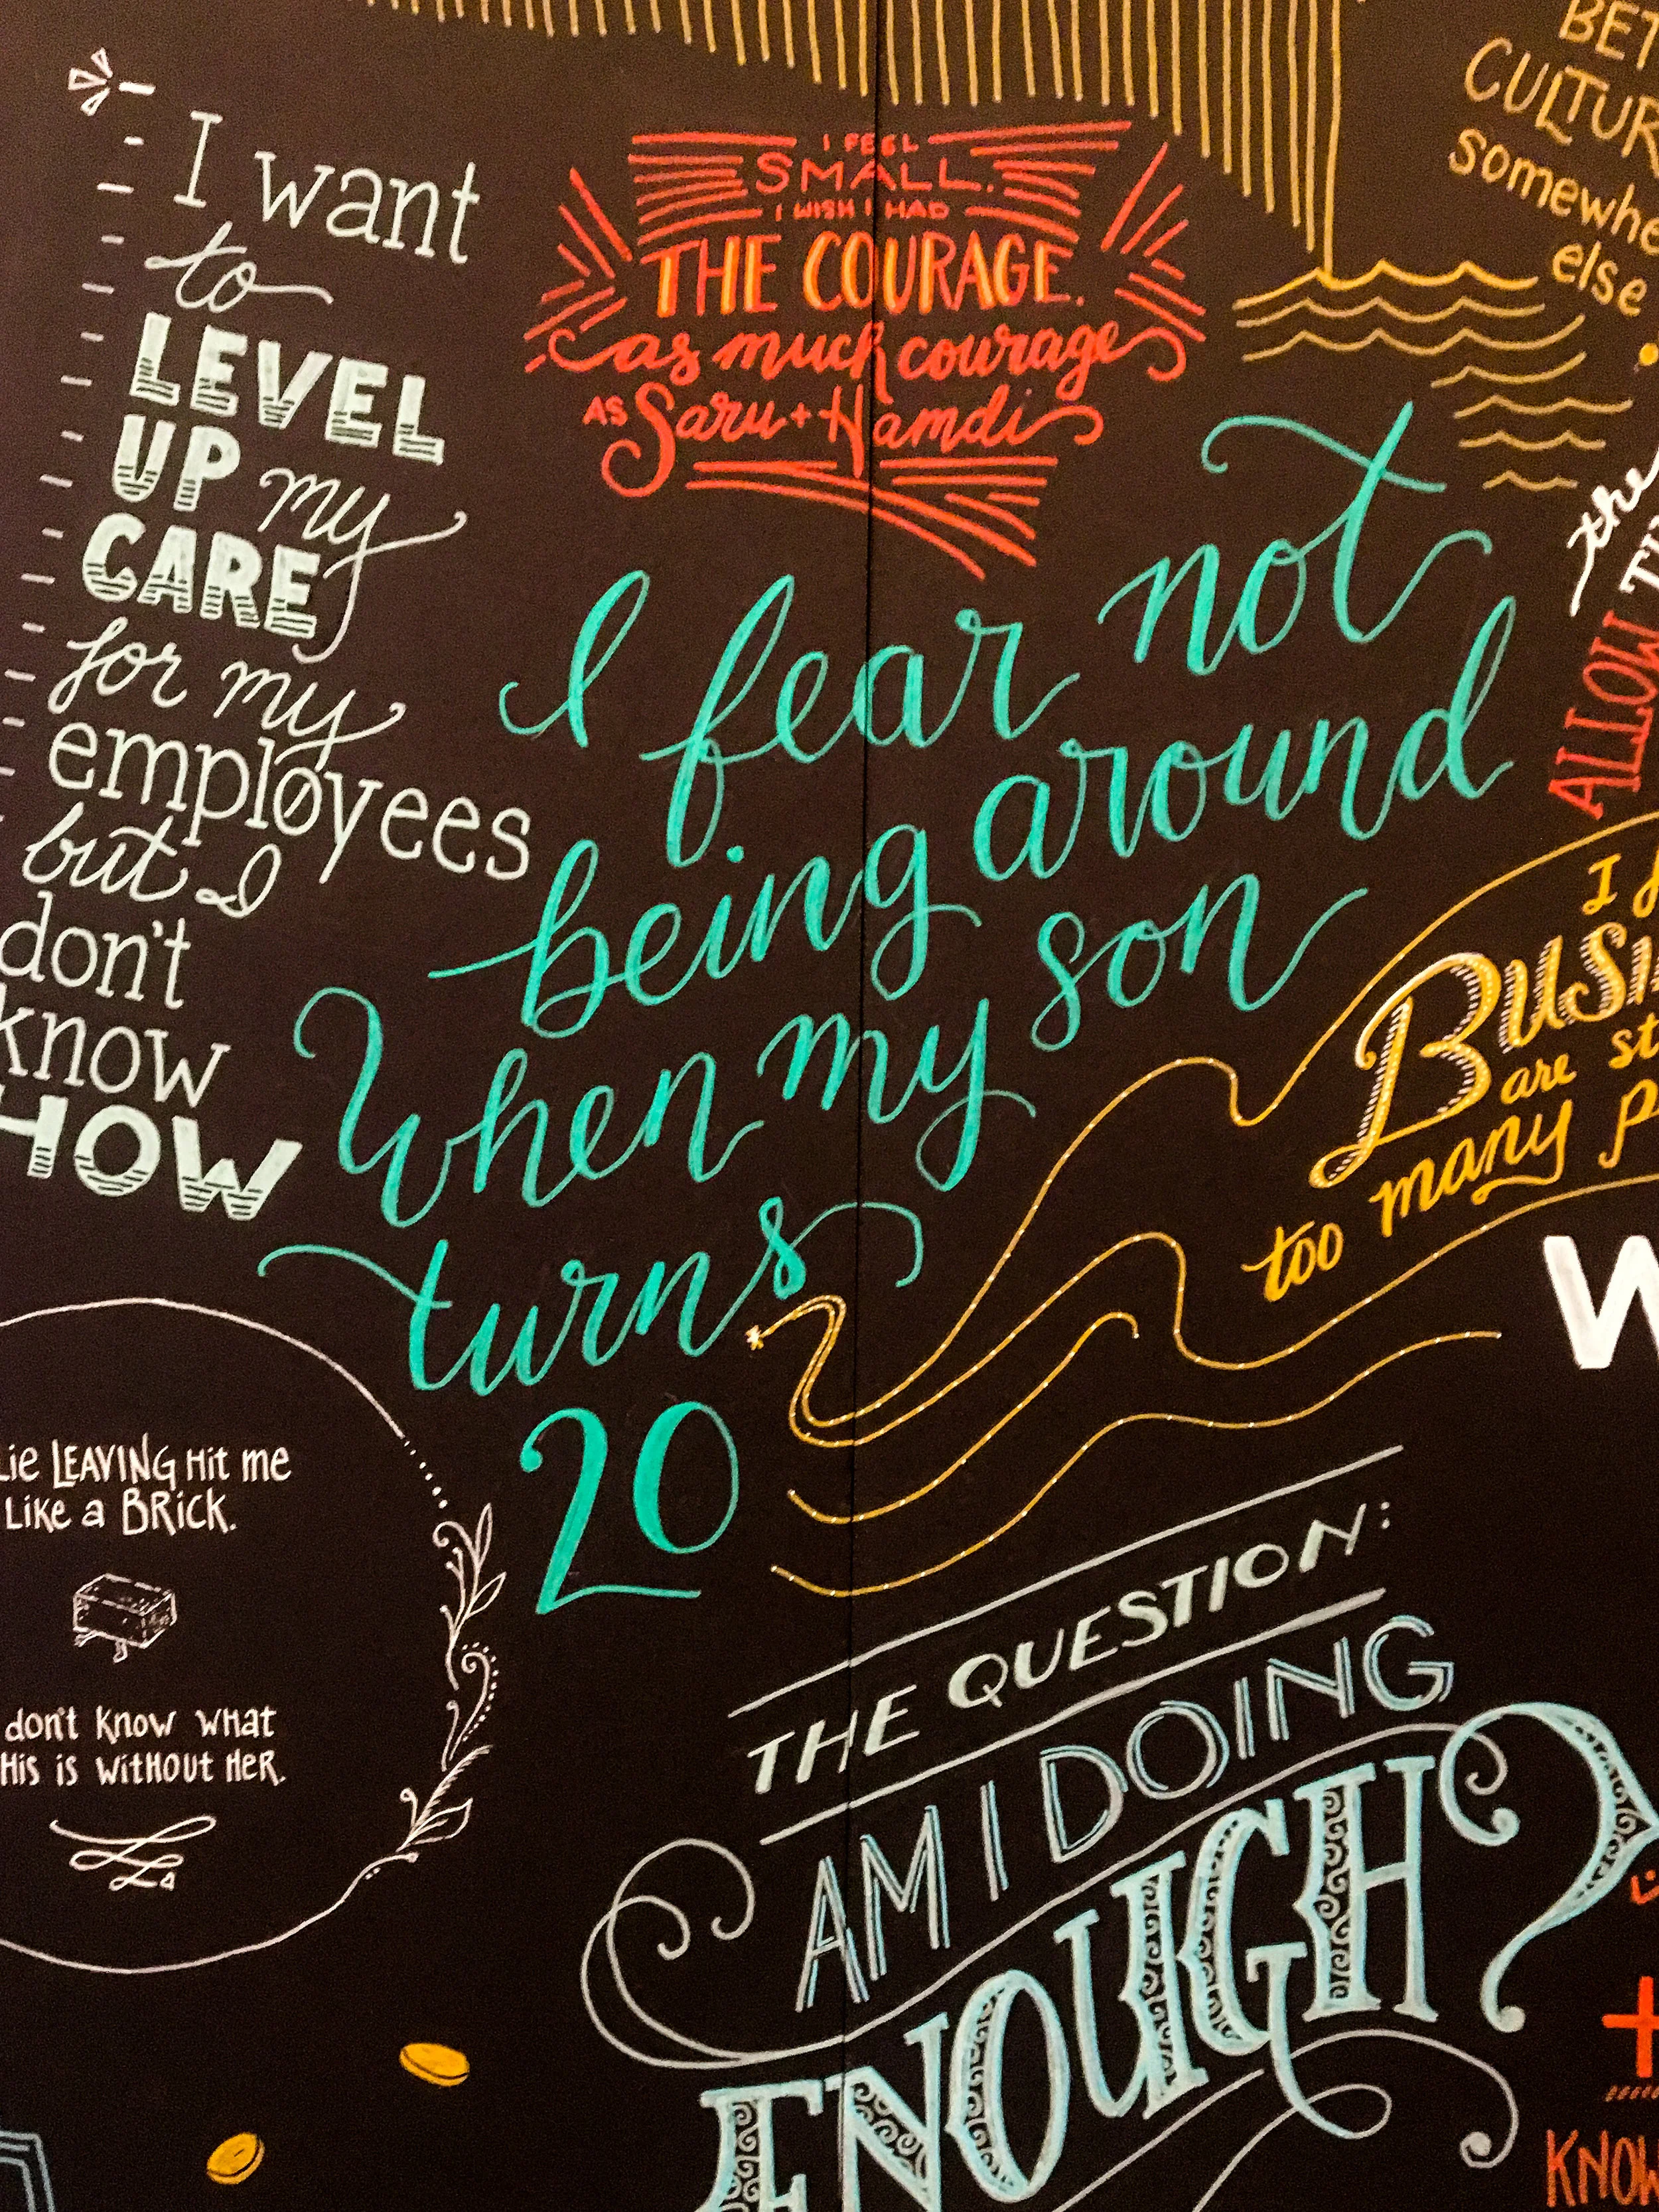 I want
to
LEVEL
UP my
CARE
for my
employees
but I
don't
know
HOW
I FEEL
SMALL.
I WISH I HAD
THE COURAGE.
as much courage
AS Saru + Hamdi
somewhe
else
the
ALLOW
I fear not
being around
When my son
turns
20
I
are st
too many p
LEAVING Hit me
Like a BRick.
don't know what
is without Her.
THE QUESTION:
AM I DOING
ENOUGH?
W
+
KNOW